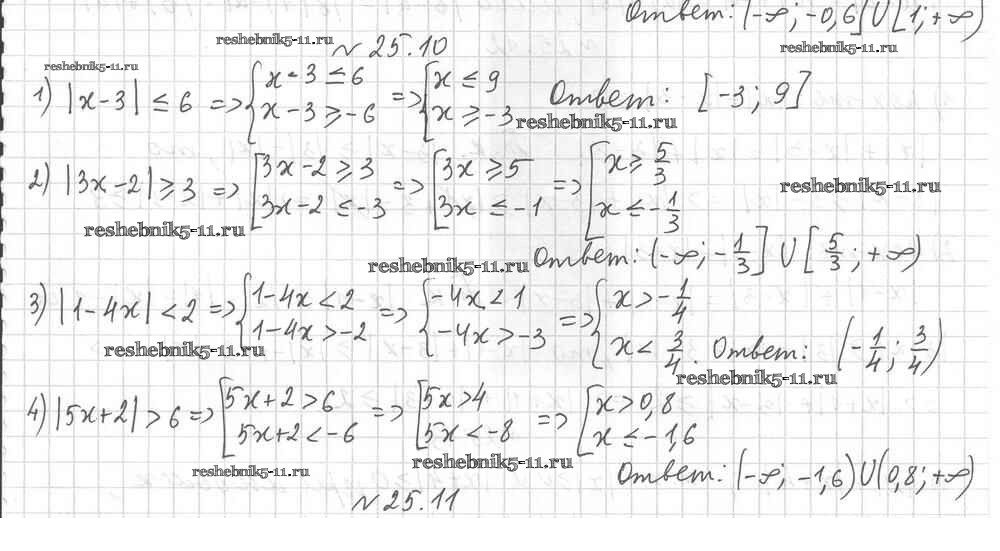 Ответ: (-∞; -0,6] ∪ [1; +∞)
reshebnik5-11.ru № 25.10 reshebnik5-11.ru
reshebnik5-11.ru
1) |x-3| ≤ 6 => { x-3 ≤ 6 ; x-3 ≥ -6 => { x ≤ 9 ; x ≥ -3 Ответ: [-3; 9]
reshebnik5-11.ru
2) |3x-2| ≥ 3 => [ 3x-2 ≥ 3 ; 3x-2 ≤ -3 => [ 3x ≥ 5 ; 3x ≤ -1 => [ x ≥ 5/3 ; x ≤ -1/3
reshebnik5-11.ru
reshebnik5-11.ru
Ответ: (-∞; -1/3] ∪ [5/3; +∞)
reshebnik5-11.ru
3) |1-4x| < 2 => { 1-4x < 2 ; 1-4x > -2 => { -4x < 1 ; -4x > -3 => { x > -1/4 ; x < 3/4 . Ответ: (-1/4; 3/4)
reshebnik5-11.ru
reshebnik5-11.ru
4) |5x+2| > 6 => [ 5x+2 > 6 ; 5x+2 < -6 => [ 5x > 4 ; 5x < -8 => [ x > 0,8 ; x ≤ -1,6
reshebnik5-11.ru
reshebnik5-11.ru
Ответ: (-∞; -1,6) ∪ (0,8; +∞)
№ 25.11